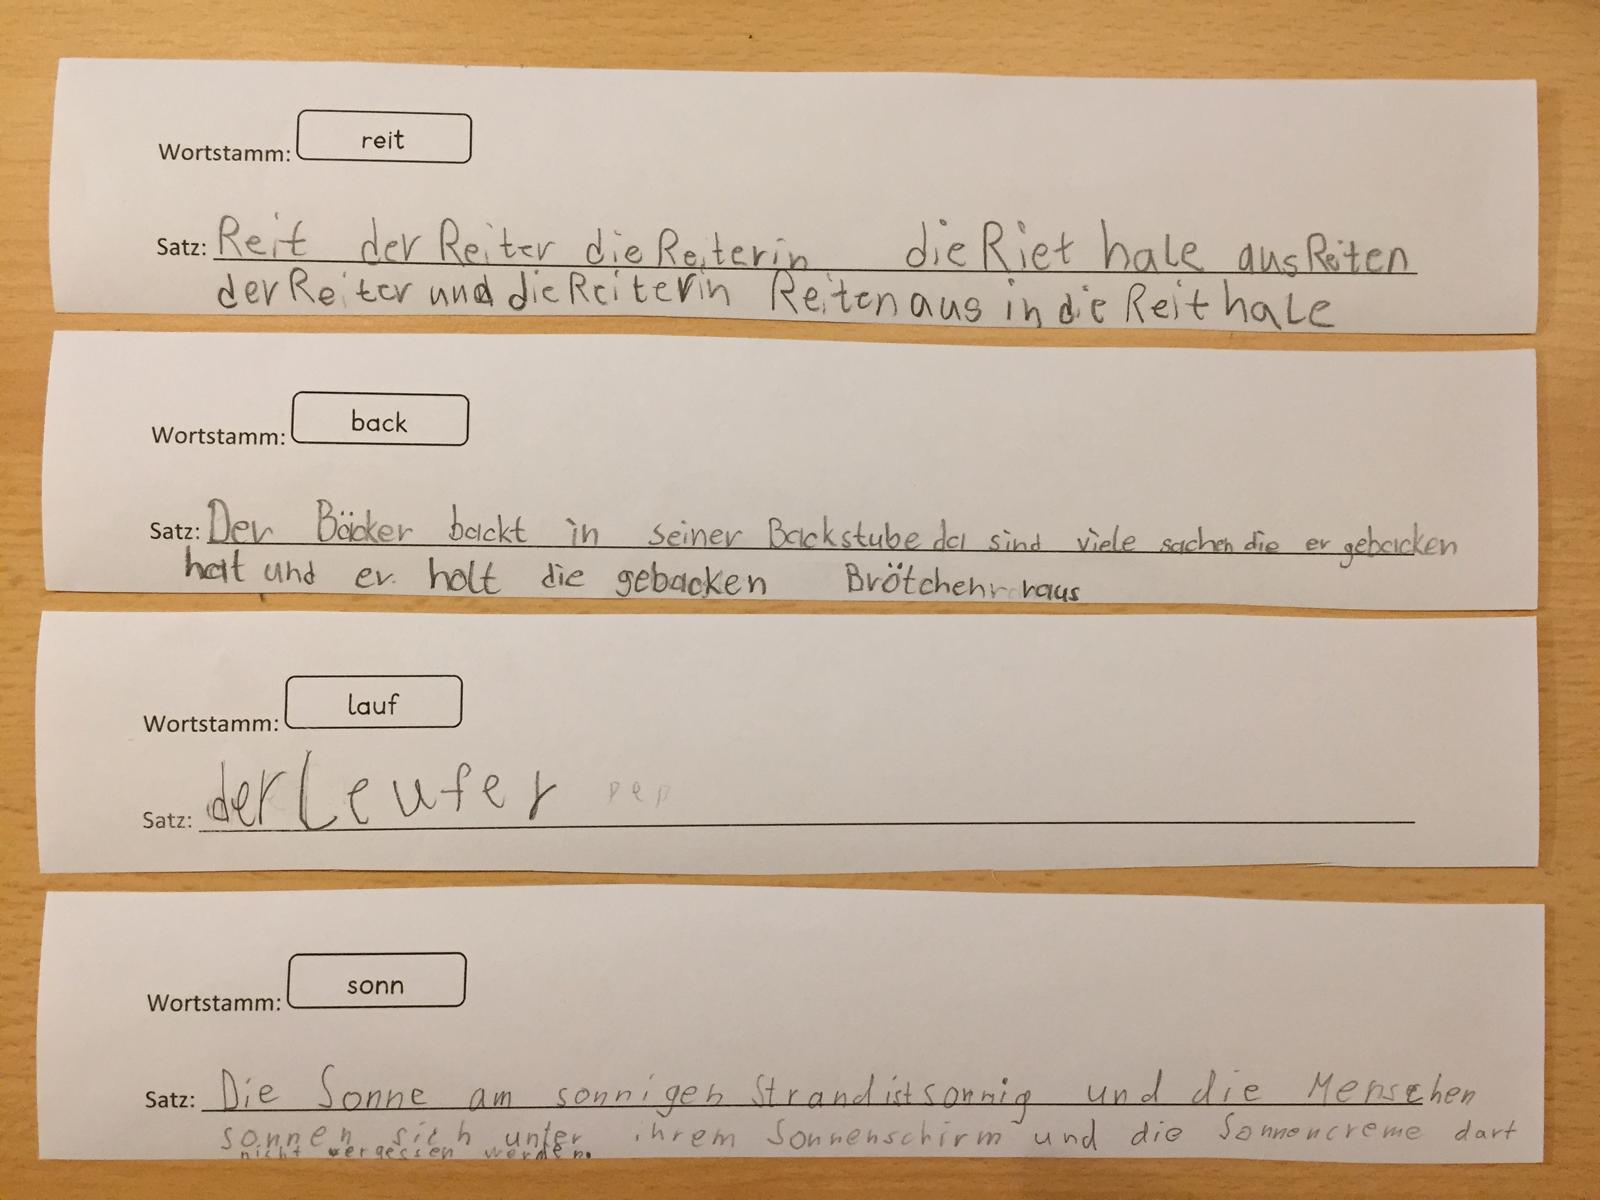 Wortstamm: reit
Satz: Reit der Reiter die Reiterin die Riet hale aus Reiten
der Reiter und die Reiterin Reiten aus in die Reit hale
Wortstamm: back
Satz: Der Bäcker backt in seiner Backstube da sind viele sachen die er gebacken
hat und er holt die gebacken Brötchen raus
Wortstamm: lauf
Satz: der Leufer
Wortstamm: sonn
Satz: Die Sonne am sonnigen Strand ist sonnig und die Menschen
sonnen sich unter ihrem Sonnenschirm und die Sonnencreme darf
nicht vergessen werden.